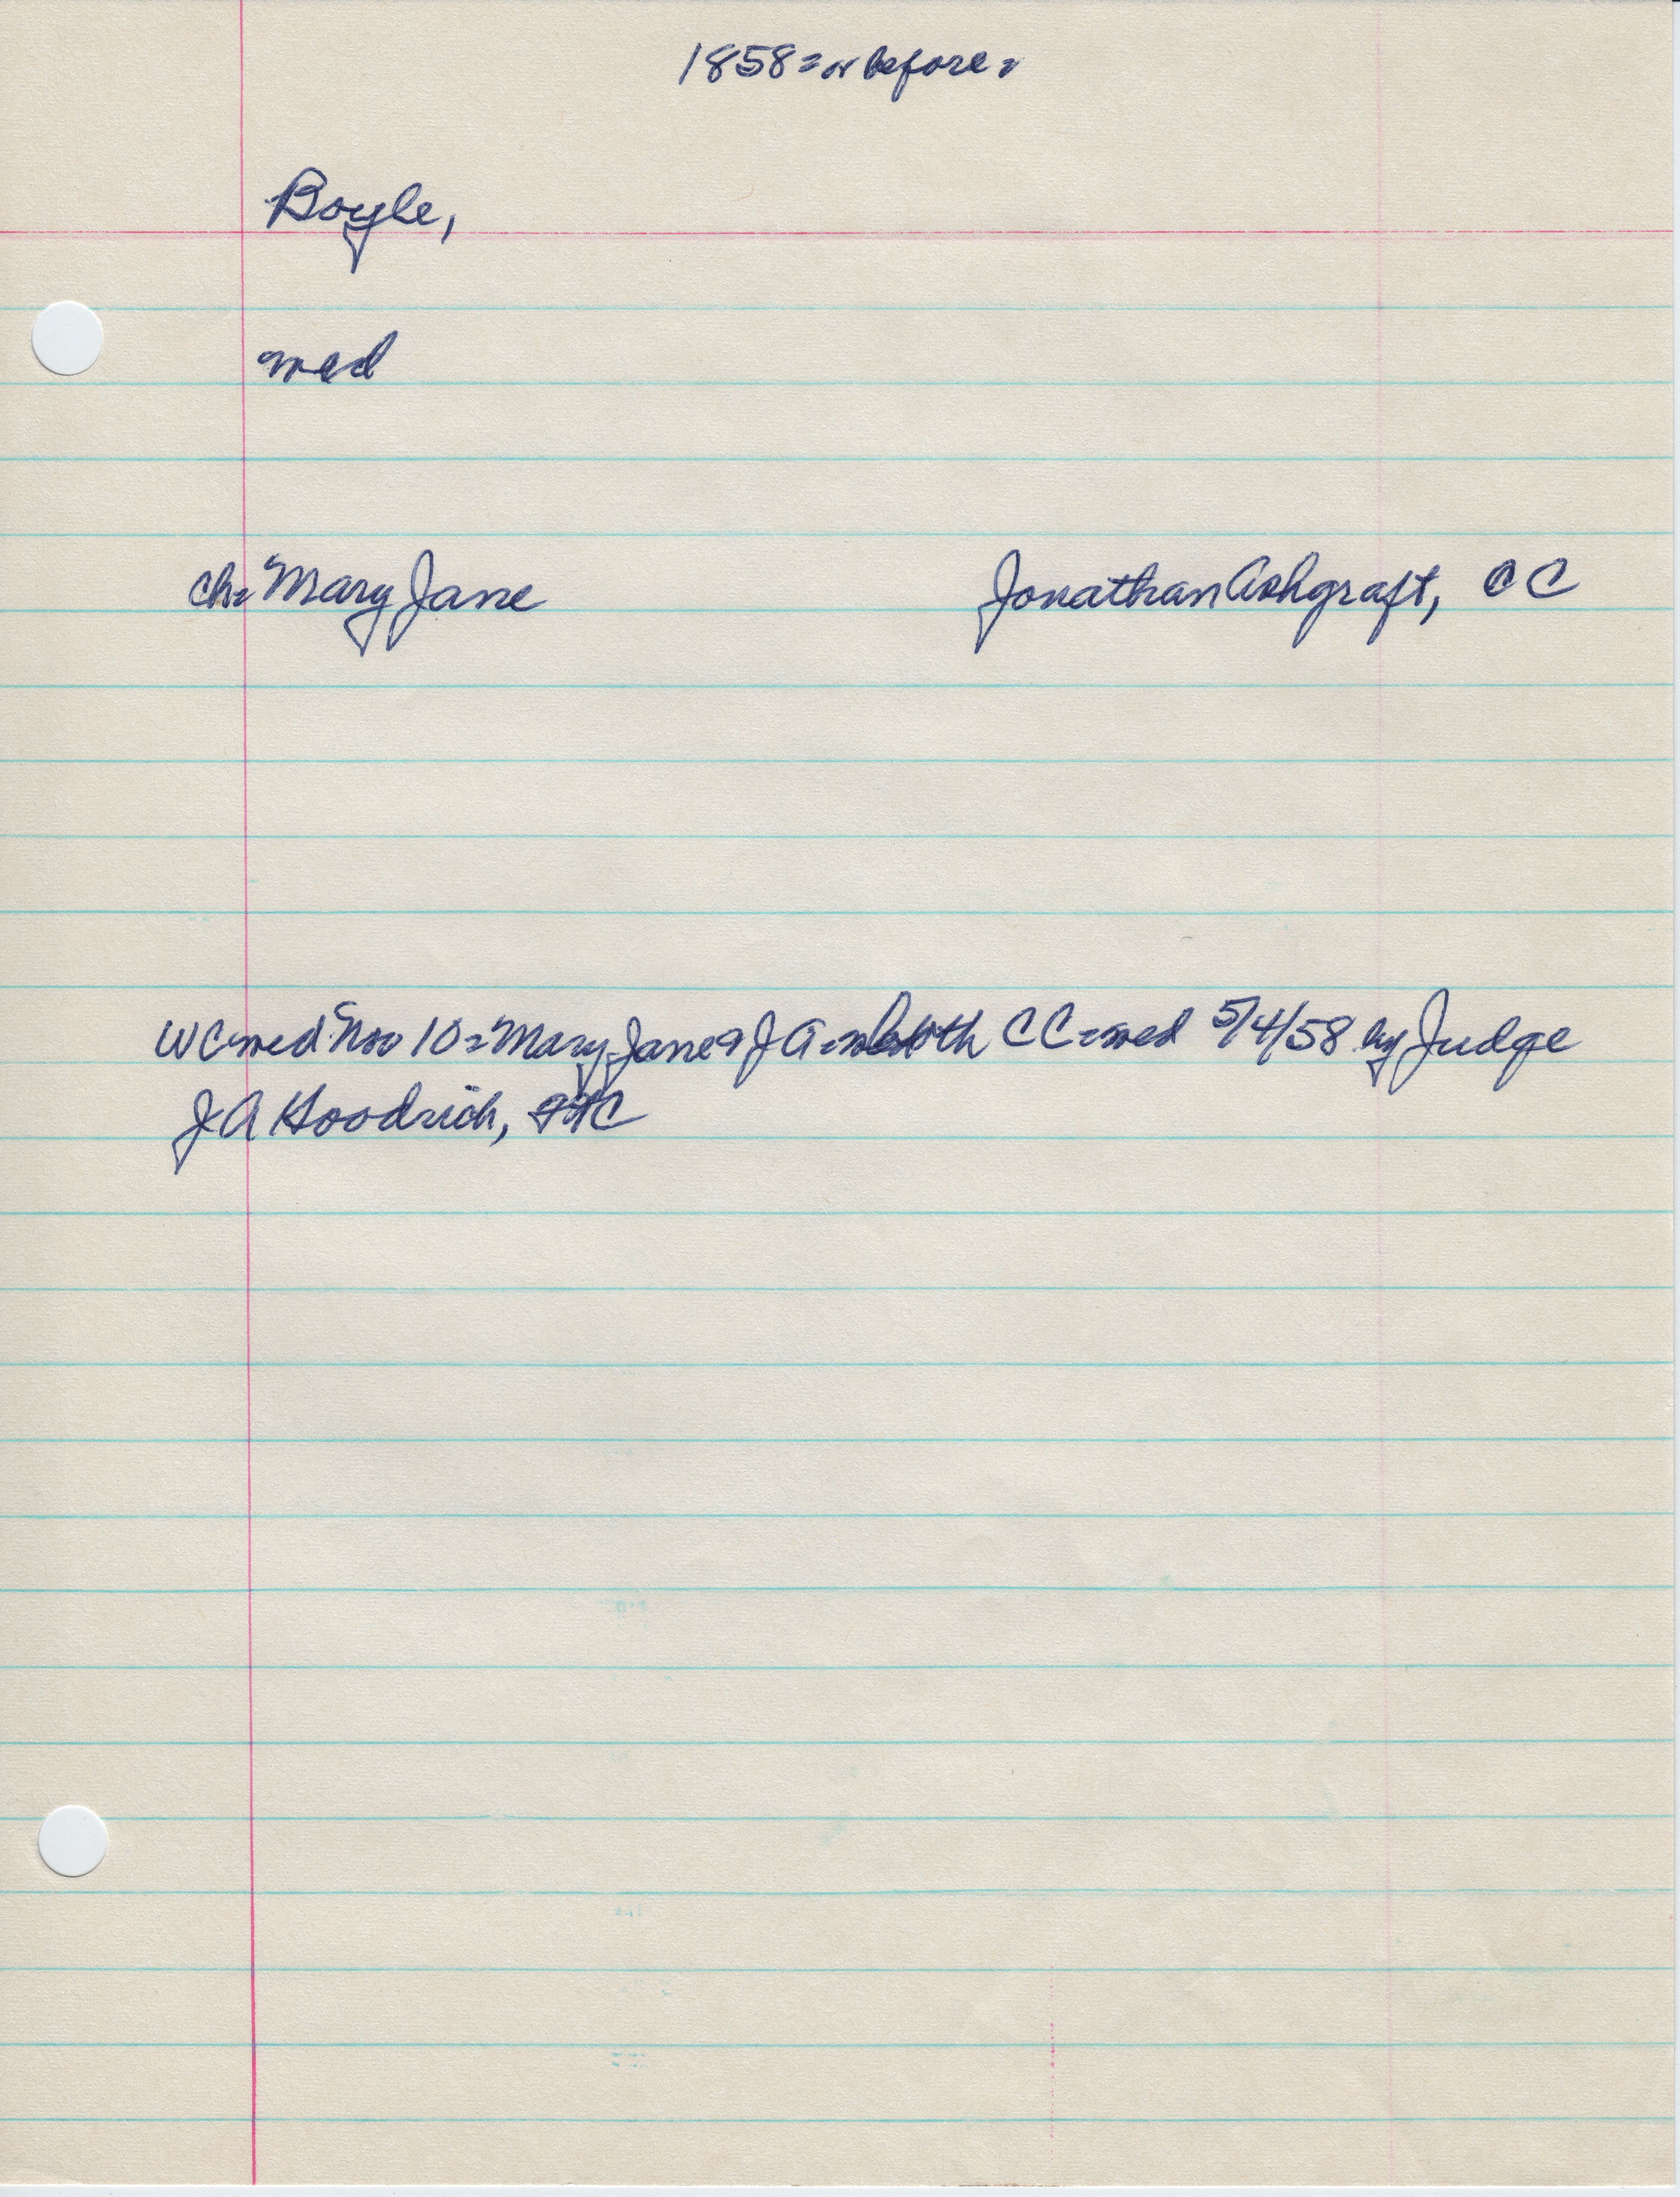 1858 = or before =
Boyle,
med
ch = Mary Jane Jonathan Ashgraft, CC
WC med Nov 10 = Mary Jane & J A = both CC = med 5/4/58 by Judge
J A Goodrich,